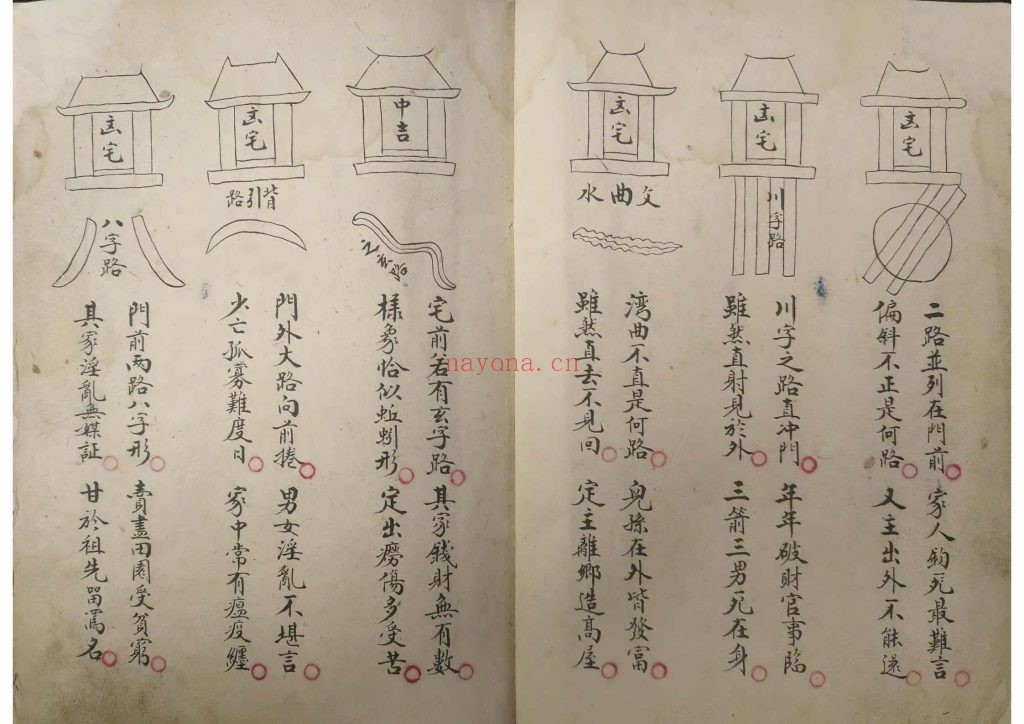 玄宅
二路並列在門前 家人鈎死最難言
偏斜不正是何路 又主出外不能還
玄宅
川字路
川字之路直冲門 年年破財官事臨
雖然直射見於外 三箭三男死在身
玄宅
文曲水
湾曲不直是何路 兒孫在外皆發富
雖然直去不見回 定主離鄉造高屋
中吉
之玄路
宅前若有玄字路 其家錢財無有數
樣象恰似蚯蚓形 定出癆傷多受苦
玄宅
背引路
門外大路向前捲 男女淫亂不堪言
少亡孤寡難度日 家中常有瘟疫纏
玄宅
八字路
門前两路八字形 賣盡田園受貧窮
其家淫亂無媒証 甘於祖先留罵名
nayona.cn